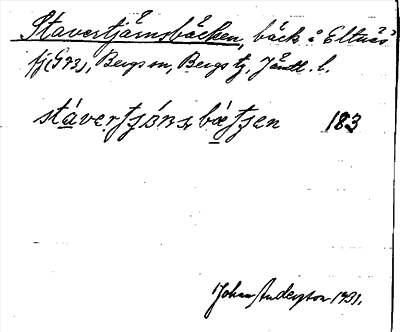 Stavertjärnsbäcken, bäck å Eltnäs
fj (G 93), Bergs sn, Bergs tg, Jämtl. l.
stáverʈʂǿrns, bæʈʂen 183
Johan Anderson 1931.